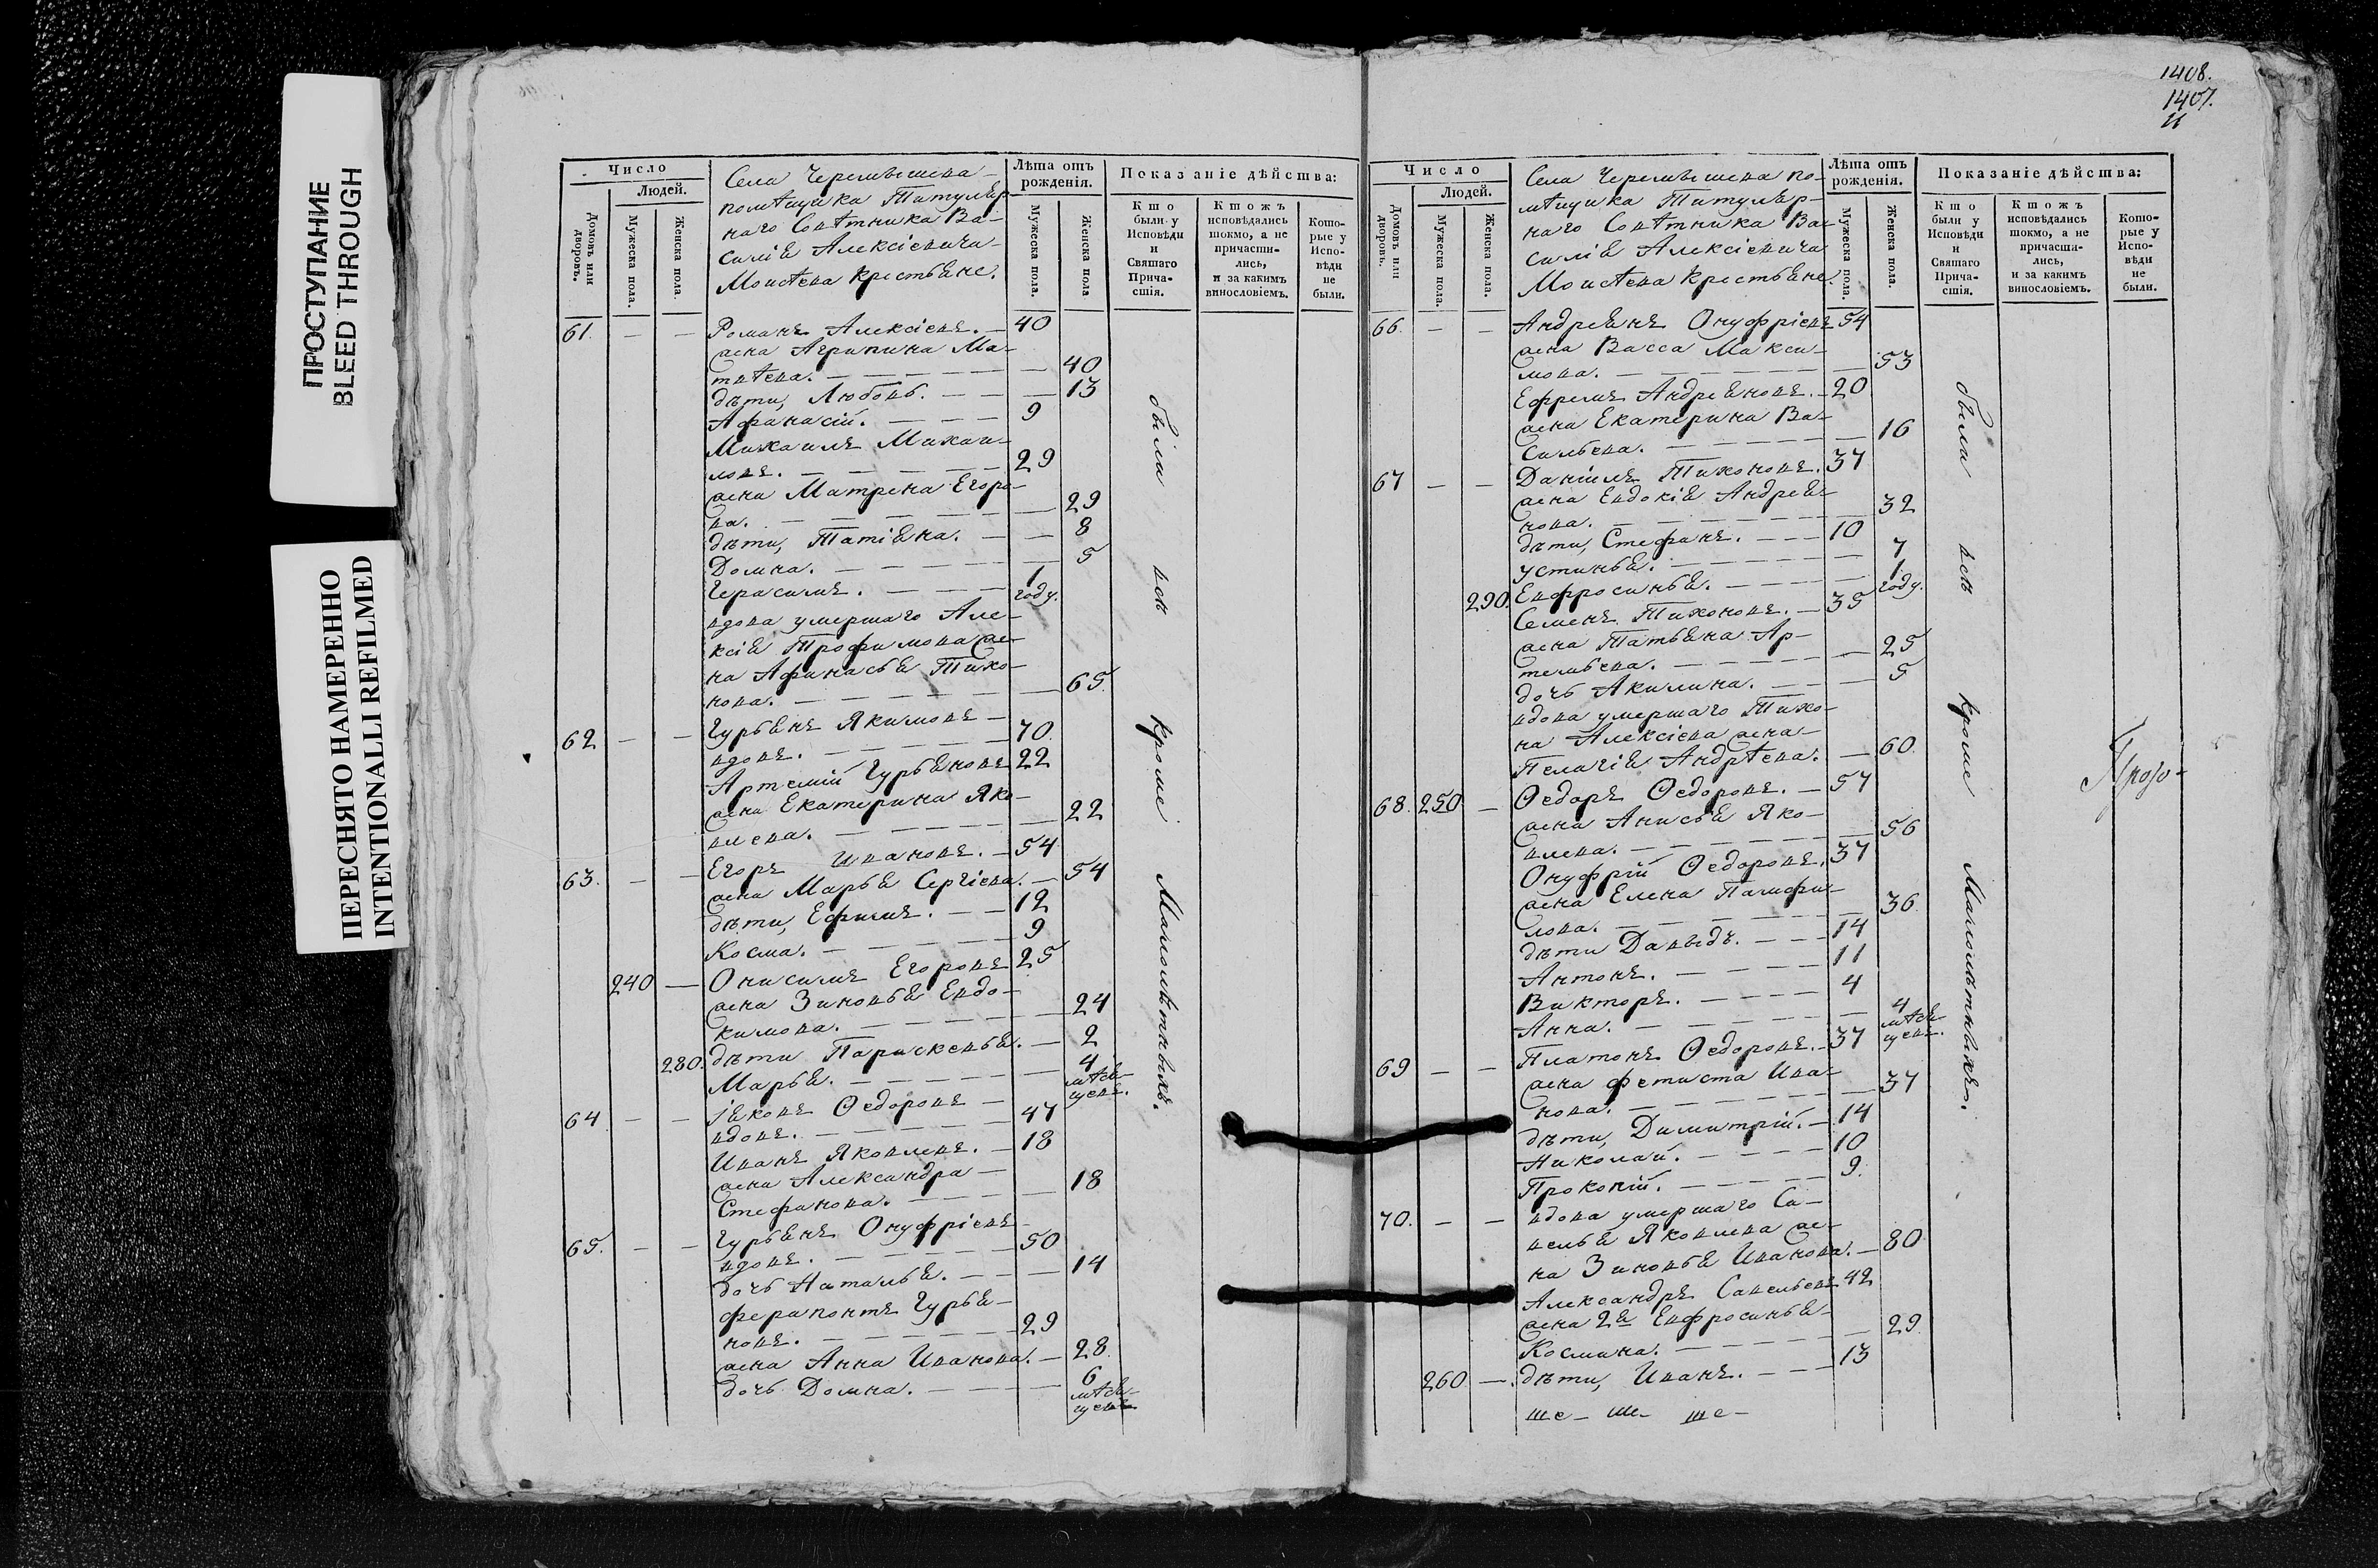 1408.
1407.
ПРОСТУПАНИЕ
BLEED THROUGH
ПЕРЕСНЯТО НАМЕРЕННО
INTENTIONALLI REFILMED
Число
Людей.
Домовъ или дворовъ.
Мужеска пола.
Женска пола.
Села Черемышева
помѣщика Титуляр-
наго Совѣтника Ва-
силія Алексіевича
Моисѣева крестьяне.
Лѣта отъ рожденія.
Мужеска пола.
Женска пола
Показаніе дѣйства:
Кто были у Исповѣди и Святаго Прича-стія.
Ктожъ исповѣдались токмо, а не причасти-лись, и за какимъ винословіемъ.
Кото-рые у Испо-вѣди не были.
61. — — Романъ Алексіевъ. — 40
жена Агрипина Ма-
твѣева. — 40
дѣти, Любовь. — 13
Афанасій. — 9
Михаилъ Михаи-
ловъ. — 29
жена Матрена Егоро-
ва. — 29
дѣти, Татіяна. — 8
Домна. — 5
Герасимъ. — 1 году.
вдова умершаго Але-
ксія Трофимова же-
на Афанасья Тихо-
нова. — 65.
62 — — Гурьянъ Якимовъ —
вдовъ. — 70.
Артемій Гурьяновъ 22
жена Екатерина Яко-
влева. — 22
63. — — Егоръ Ивановъ. — 54
жена Марья Сергіева. — 54
дѣти, Ефимъ. — 12
Косма. — 9
240 — Онисимъ Егоровъ 25
жена Зиновья Евдо-
кимова. — 24
280. дѣти Парискевья. — 2
Марья. — 4 мѣся-цевъ.
64 — — Іяковъ Ѳедоровъ —
вдовъ. — 47
Иванъ Яковлевъ. — 18
жена Александра —
Стефанова. — 18
65. — — Гурьянъ Онуфріевъ
вдовъ. — 50
дочь Наталья. — 14
Ферапонтъ Гурья-
новъ. — 29
жена Анна Иванова. — 28.
дочь Домна. — 6 мѣся-цевъ
были всѣ кроме Малолѣтныхъ.
Число
Людей.
Домовъ или дворовъ.
Мужеска пола.
Женска пола.
Села Черемышева по-
мѣщика Титуляр-
наго Совѣтника Ва-
силія Алексіевича
Моисѣева крестьяне.
Лѣта отъ рожденія.
Мужеска пола.
Женска пола.
Показаніе дѣйства:
Кто были у Исповѣди и Святаго Прича-стія.
Ктожъ исповѣдались токмо, а не причасти-лись, и за какимъ винословіемъ.
Кото-рые у Испо-вѣди не были.
66. — — Андреянъ Онуфріевъ 54
жена Васса Макси-
мова. — 53
Ефремъ Андреяновъ. — 20
жена Екатерина Ва-
сильева. — 16
67 — — Даніилъ Тихоновъ. 37
жена Евдокія Андрея-
нова. — 32
дѣти, Стефанъ. — 10
Устинья. — 7
290. Евфросинья. — 1 году.
Семенъ Тихоновъ. — 35
жена Татьяна Ар-
темьева. — 25
дочь Акилина. — 5
вдова умершаго Тихо-
на Алексіева жена
Пелагія Андрѣева. — 60.
68. 250 — Ѳедоръ Ѳедоровъ. — 57
жена Анисья Яко-
влева. — 56
Онуфрій Ѳедоровъ. 37
жена Елена Памфи-
лова. — 36.
дѣти Давыдъ. — 14
Антонъ. — 11
Викторъ. — 4
Анна. — 4 мѣся-цевъ.
69 — — Платонъ Ѳедоровъ. — 37
жена Фетиста Ива-
нова. — 37
дѣти, Димитрій. — 14
Николай. — 10
Прокопій. — 9.
70. — — вдова умершаго Са-
велья Яковлева же-
на Зиновья Иванова. — 80
Александръ Савельевъ 42
жена 2я Евфросинья
Космина. — 29.
260 — дѣти, Иванъ. — 13
были всѣ кроме Малолѣтныхъ.